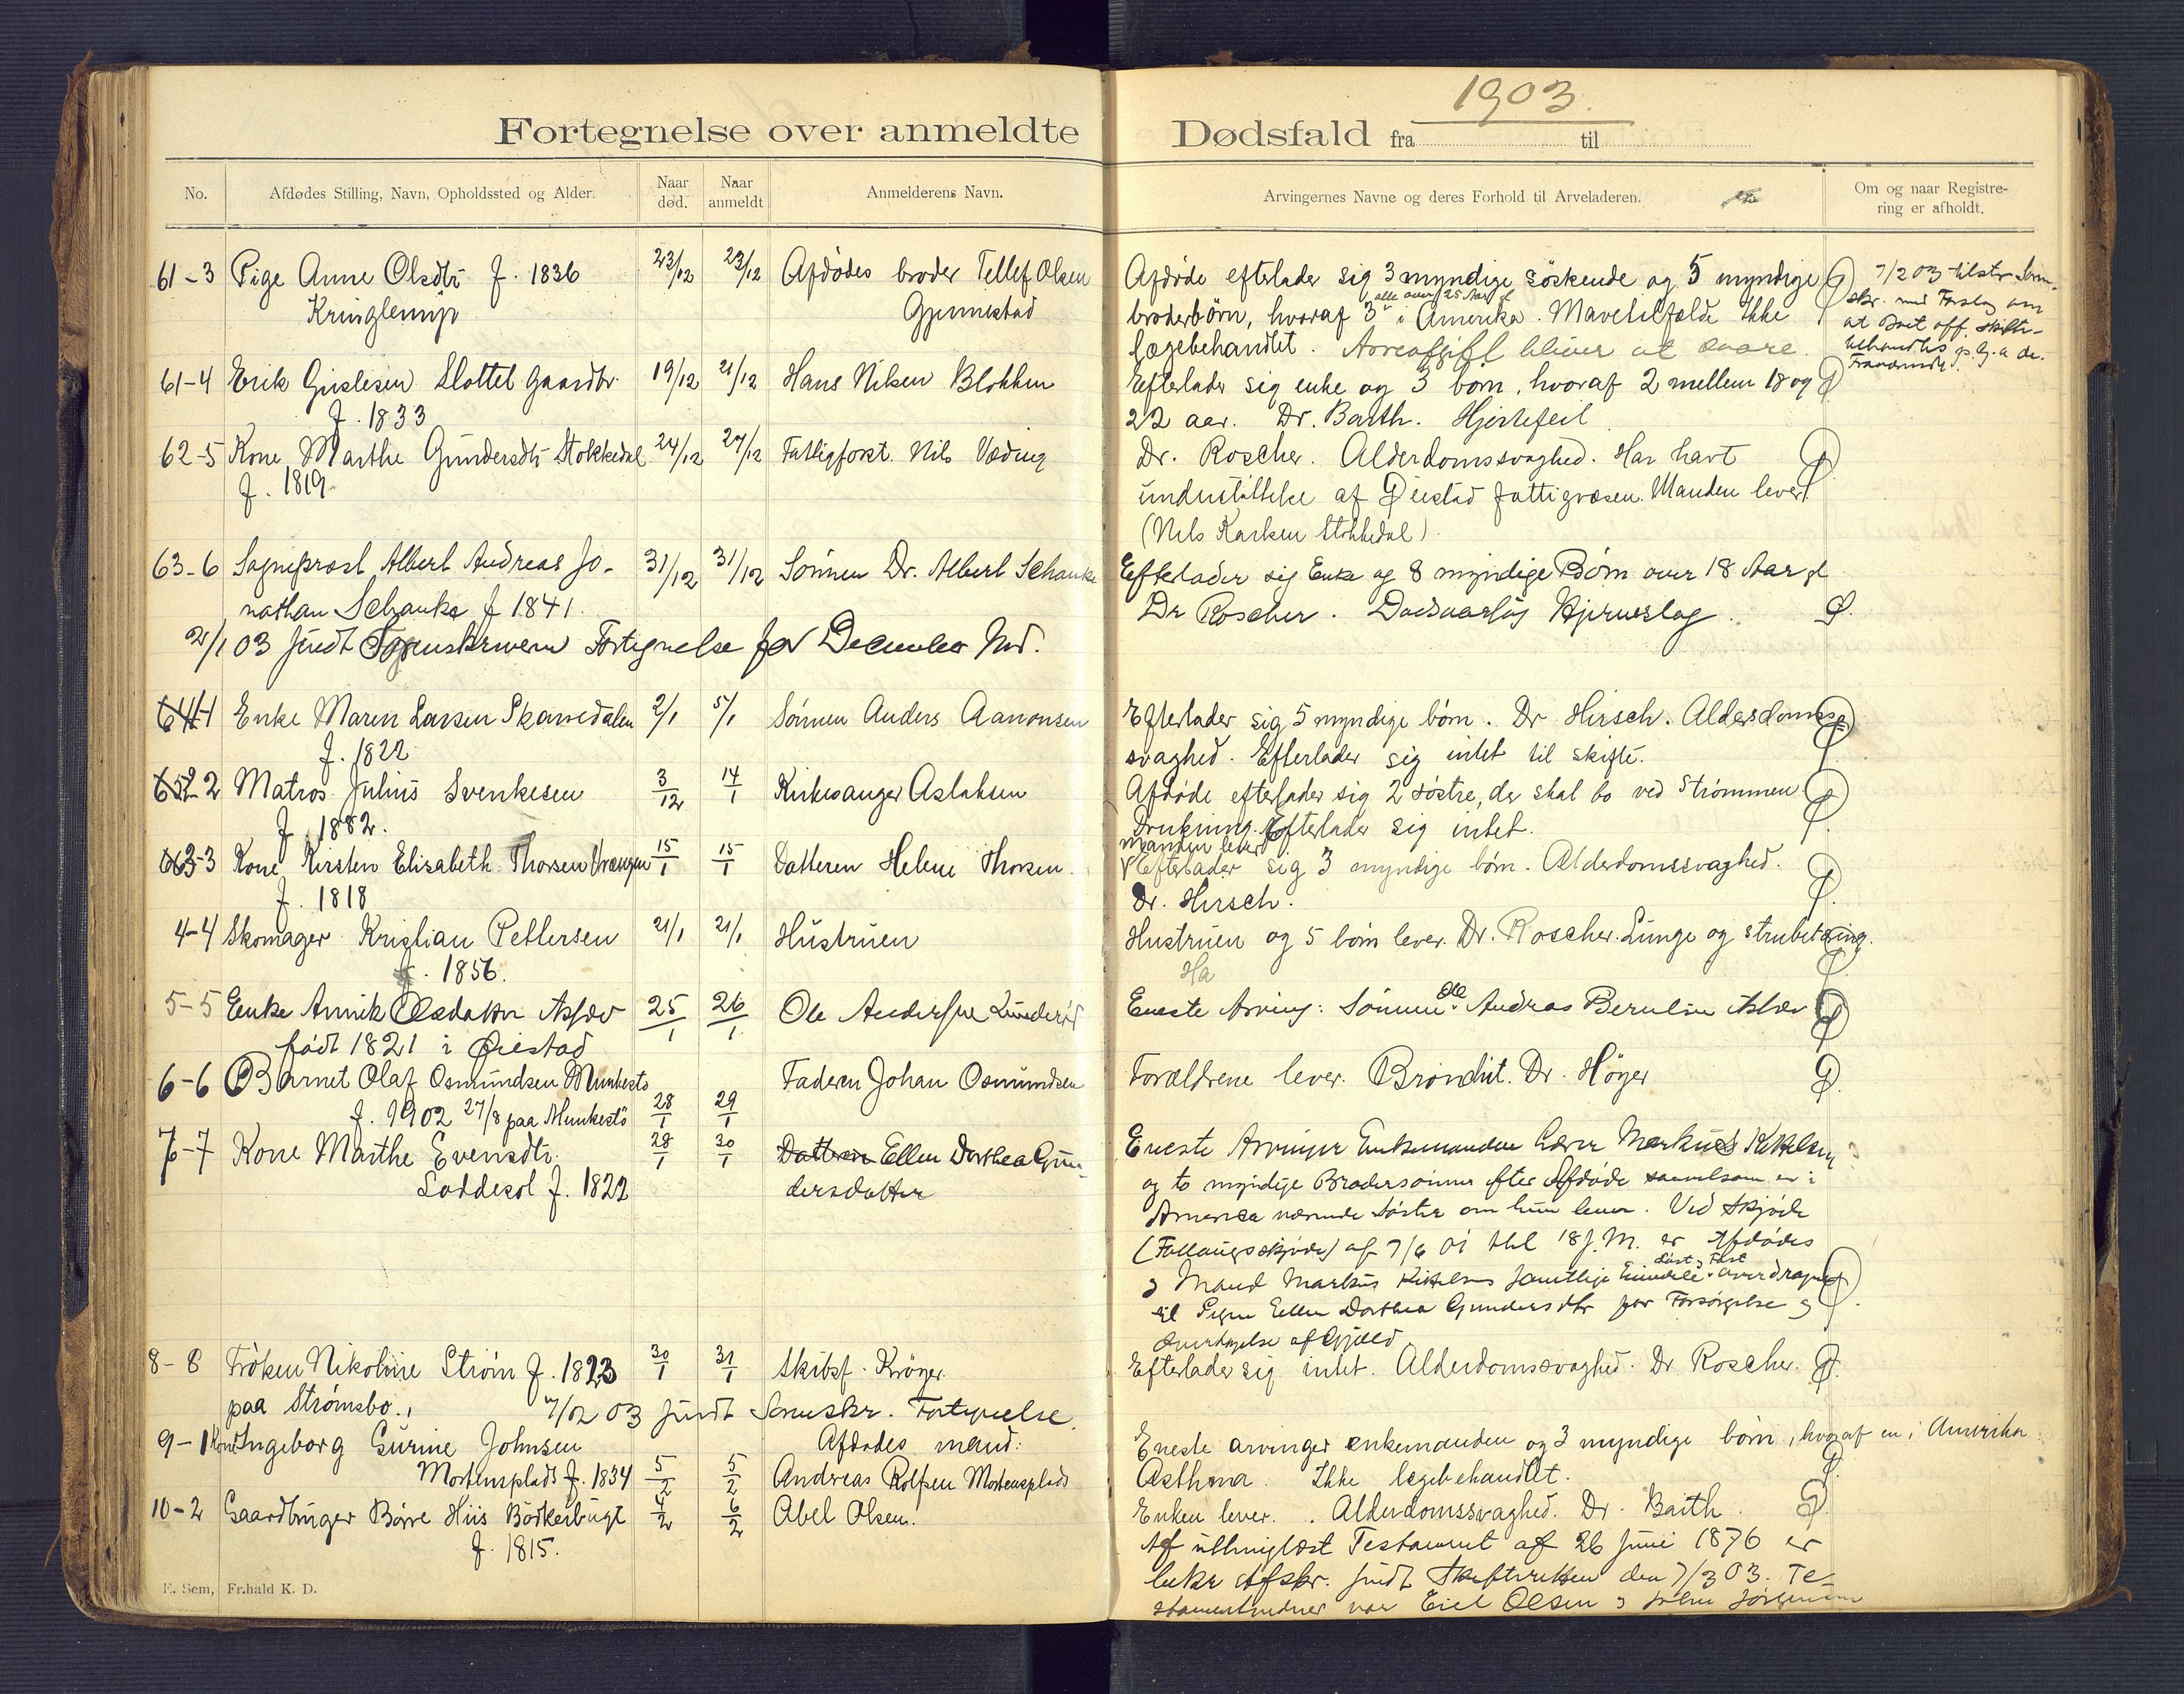 1903.
Fortegnelse over anmeldte Dødsfald fra til
No.
Afdødes Stilling, Navn, Opholdssted og Alder.
Naar død.
Naar anmeldt
Anmelderens Navn.
Arvingernes Navne og deres Forhold til Arveladeren.
Om og naar Registrering er afholdt.
61-3 Pige Anne Olsdtr f. 1836 23/12 23/12 Afdødes broder Tellef Olsen
Gjennestad
Afdøde efterlader sig 3 myndige søskende og 5 myndige
alle over 25 Aar
broderbörn, hvoraf 3 i Amerika. Ikke
lægebehandlet. Arveafgift bliver at svare.
7/2 03
61-4 Erik Gislesen Slottet gaardbr. 19/12 21/12 Hans Nilsen Blokken
f. 1833
Efterlader sig enke og 3 børn, hvoraf 2 mellem 18 og
22 aar. Dr. Barth. Hjertefeil
62-5 Kone Marthe Gundersdtr Stokkedal 24/12 27/12 Fattigforst. Nils Væding
f. 1819
Dr. Roscher. Alderdomssvaghed. Har havt
understøttelse af Øiestad fattigvæsen. Manden lever
(Nils Stokkedal)
63-6 Sogneprost Albert Andreas Jo-
nathan Schanke f 1841.
31/12 31/12 Sönnen Dr. Albert Schanke
Efterlader sig Enke og 8 myndige Børn over 18 Aar
Dr Roscher. Dødsaarsag Hjerneslag.
2/1 03 sendt Sorenskriveren Fortegnelse for December Md.
64-1 Enke Maren Larsen Skaredalen 2/1 5/1 Sønnen Anders Aanonsen
f. 1822
Efterlader sig 5 myndige børn. Dr Hirsch. Alderdoms-
svaghed. Efterlader sig intet til skifte.
2-2 Matros Julius Svenkesen 3/12 14/1 Kirkesanger Aslaksen
f. 1882.
Afdøde efterlader sig 2 søstre, der skal bo ved Strømmen
Drukning. Efterlader sig intet.
3-3 Kone Kirsten Elisabeth Thorsen Vrængen 15/1 15/1 Datteren Helene Thorsen.
f. 1818
Manden lever
Efterlader sig 3 myndige børn. Alderdomssvaghed.
Dr. Hirsch.
4-4 Skomager Kristian Pettersen 21/1 21/1 Hustruen
f. 1856.
Hustruen og 5 børn lever. Dr. Roscher. Lunge og strubetæring.
Ha
5-5 Enke Annik Olsdatter 25/1 26/1 Ole Andersen
født 1821 i Øiestad
Eneste Arving: Sønnen Ole Andreas
6-6 Barnet Olaf Osmundsen Munkestø
f. 1902 27/8 paa Munkestø 28/1 29/1
Faderen Johan Osmundsen
Forældrene lever. Bronchit. Dr. Høyer
7-7 Kone Marthe Evensdtr. 28/1 30/1 Datteren Ellen Dorthea Gun-
Løddesøl f. 1822 dersdatter
Eneste Arvinger Enkemanden Markus Kittelsen
og to myndige Brodersønner efter Afdøde saavelsom en i
America værende Søster om hun lever. Ved Skjøde
af 7/6 01 thl 18 er Afdødes
Løst og Fast
og Mand Markus Kittelsens samtlige overdraget
til Pigen Ellen Dorthea Gundersdtr for Forsørgelse og
overtagelse af Gjæld
8-8 Frøken Nikoline Strøm f. 1823 30/1 31/1 Skibsf. Krøger.
paa Strømsbo.
Efterlader sig intet. Alderdomssvaghed. Dr Roscher.
7/02 03 sendt Fortegnelse
9-1 Kone Ingeborg Gurine Johnsen Afdødes mand:
Mortensplads f. 1834 5/2 5/2 Andreas Rolfsen Mortensplads
Eneste arvinger enkemanden og 3 myndige børn, hvoraf en i Amerika
Asthma. Ikke lægebehandlet.
10-2 Gaardbruger Børre Hiis Bødkerbugt 4/2 6/2 Abel Olsen.
f. 1815.
Enken lever. Alderdomssvaghed. Dr. Barth.
Af uthinglæst Testament af 26 Juni 1876 er
bekr Afskr. sendt Skifteretten den 7/3 03. Te-
stamentvidner var Olsen og
E. Sem, Fr.hald K. D.